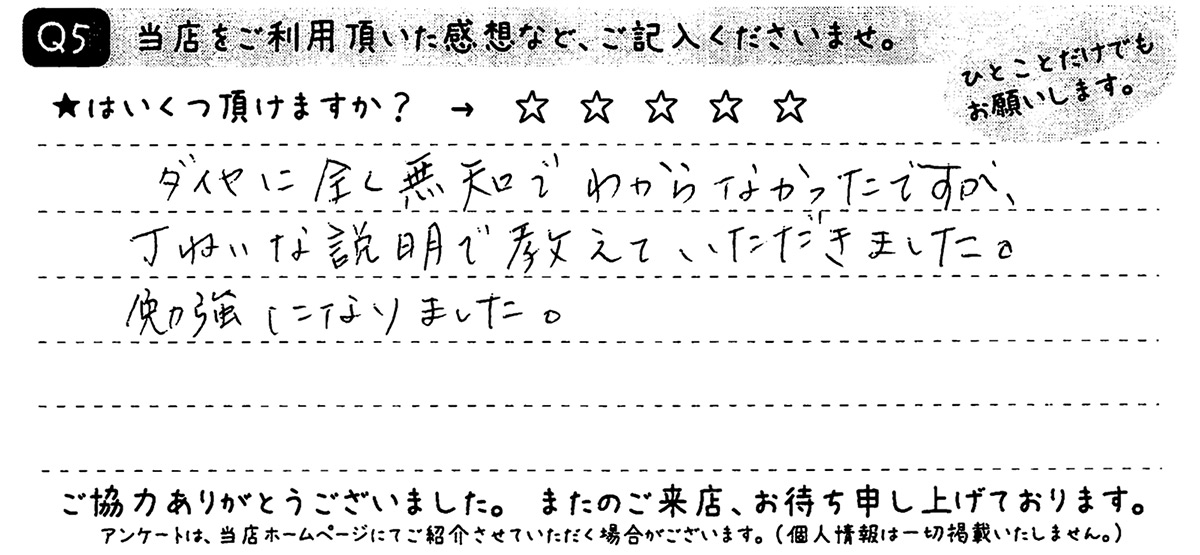 Q5 当店をご利用頂いた感想など、ご記入くださいませ。
ひとことだけでも
お願いします。
★はいくつ頂けますか？ → ☆ ☆ ☆ ☆ ☆
ダイヤに全く無知でわからなかったですが、
丁ねいな説明で教えていただきました。
勉強になりました。
ご協力ありがとうございました。 またのご来店、お待ち申し上げております。
アンケートは、当店ホームページにてご紹介させていただく場合がございます。（個人情報は一切掲載いたしません。）